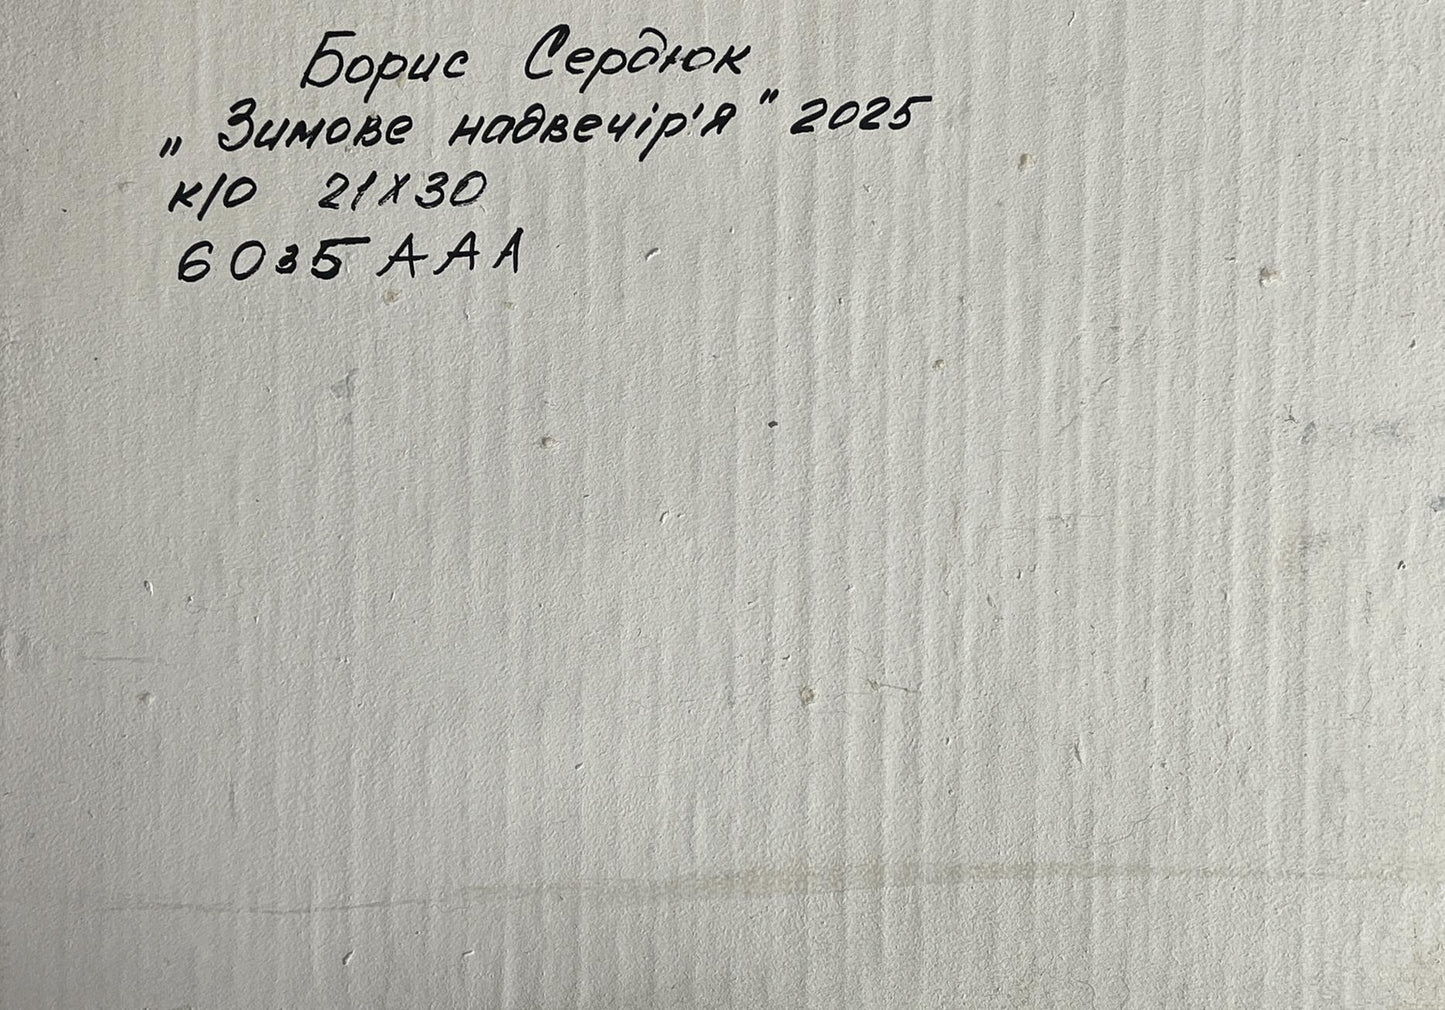 Борис Сердюк
„Зимове надвечір'я" 2025
к/о 21х30
6035 ААА